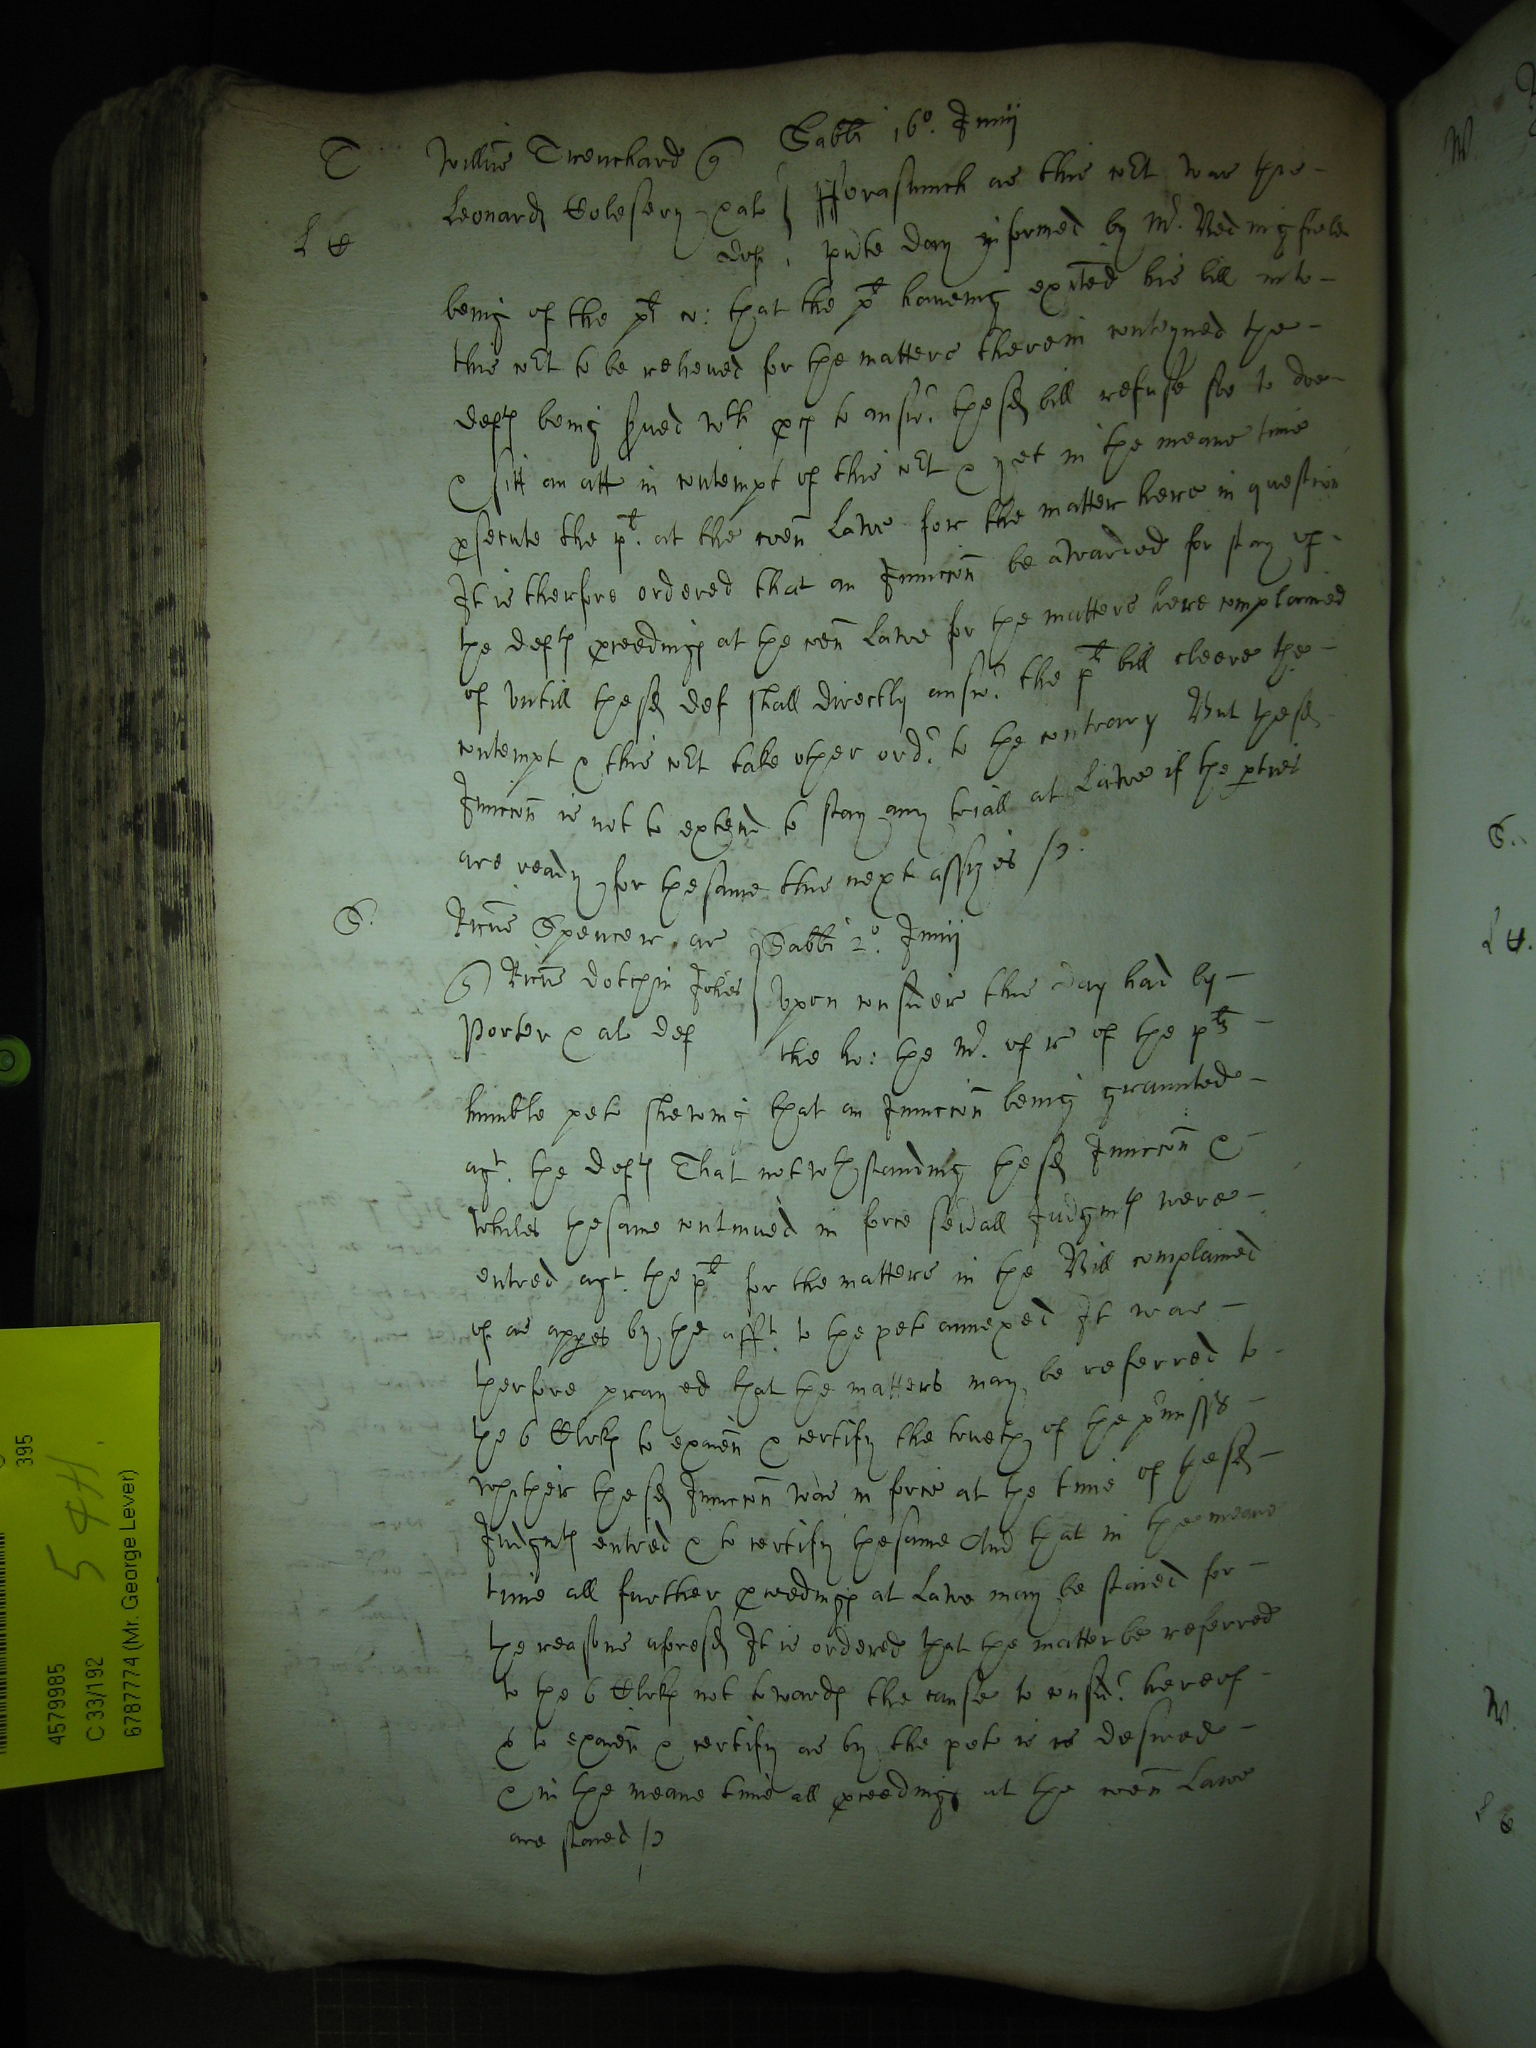 Sabbi 16o. Junij
T Willms Trenchard q
Leonard Colesery et al Forasmuch as this Crt was the
L C def pnte day informed by Mr. Bedingfield
being of the plt co: that the plt haveing exited his bill into
this Crt to be releued for the matters therein conteyned the
deftes being served wth pces to answ. the sd bill refuse soe to doe
& sitt an att in contempt of this Crt & yet in the meane time
psecute the plt. at the coen Lawe for the matter here in question
It is therfore ordered that an Iniuccon be awarded for stay of
the deftes pceedinges at the coen Lawe for the matters here complained
of vntill the sd def shall directly answ. the plt bill cleere the
contempt & this Crt take other ord. to the contrary But the sd
Iniuccon is not to extend to stay any triall at Lawe if the pties
are ready for the same this next assizes
S. Ricus Spencer ar Sabbi 2o. Junij
q Ricus dotchin Johes Vpon consider this day had by
Porter & al def the ho: the Mr. of r of the plts
humble peto shewing that an Iniuccon being graunted
agt. the deftes That notwthstanding the sd Iniuccon &
whiles the same continued in force seuall Iudgmtes were
entred agt. the plt for the matters in the Bill complained
of as appes by the afft. to the peto annexed It was
therfore prayed that the matters may be referred to
the 6 Clrkes to examn & certify the trueth of the pmisses
whither the sd Iniuccon was in force at the time of the sd
Iudgmtes entred & to certify the same And that in the meane
time all further pceedinges at Lawe may be staied for
the reasons aforesd It is ordered that the matter be referred
to the 6 Clrkes not towardes the cause to consid. hereof
& to examn & certify as by the peto is desired
& in the meane time all pceedinges at the coen Lawe
are staied
395
5 4H.
4579985
C 33/192
6787774 (Mr. George Lever)
W.
S.
L C.
W.
L C